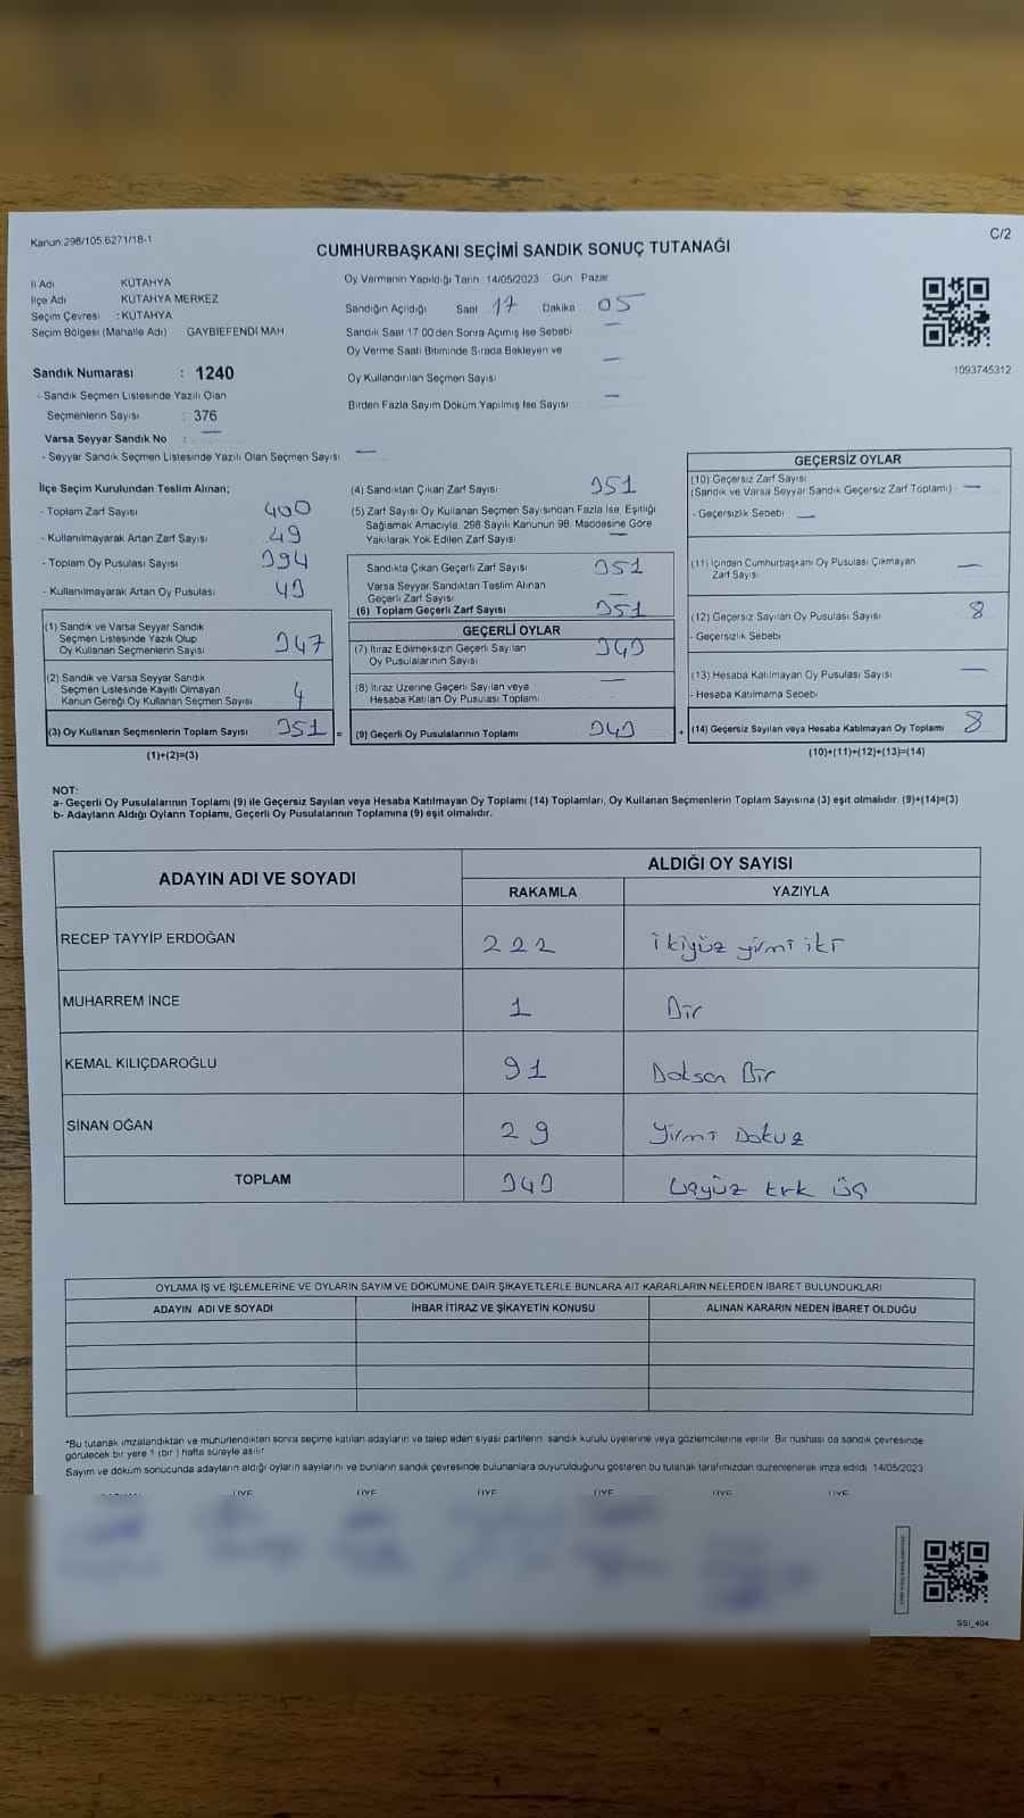 Kanun:298/105.6271/18-1
C/2
CUMHURBAŞKANI SEÇİMİ SANDIK SONUÇ TUTANAĞI
İl Adı KÜTAHYA
İlçe Adı KÜTAHYA MERKEZ
Seçim Çevresi : KÜTAHYA
Seçim Bölgesi (Mahalle Adı) GAYBİEFENDİ MAH
Sandık Numarası : 1240
- Sandık Seçmen Listesinde Yazılı Olan
Seçmenlerin Sayısı : 376
Varsa Seyyar Sandık No : —
- Seyyar Sandık Seçmen Listesinde Yazılı Olan Seçmen Sayısı —
Oy Vermenin Yapıldığı Tarih : 14/05/2023 Gün Pazar
Sandığın Açıldığı Saat 17 Dakika 05
Sandık Saat 17.00'den Sonra Açılmış İse Sebebi —
Oy Verme Saati Bitiminde Sırada Bekleyen ve
Oy Kullandırılan Seçmen Sayısı —
Birden Fazla Sayım Döküm Yapılmış İse Sayısı —
1093745312
İlçe Seçim Kurulundan Teslim Alınan;
- Toplam Zarf Sayısı 400
- Kullanılmayarak Artan Zarf Sayısı 49
- Toplam Oy Pusulası Sayısı 394
- Kullanılmayarak Artan Oy Pusulası 43
(1) Sandık ve Varsa Seyyar Sandık
Seçmen Listesinde Yazılı Olup
Oy Kullanan Seçmenlerin Sayısı 347
(2) Sandık ve Varsa Seyyar Sandık
Seçmen Listesinde Kayıtlı Olmayan
Kanun Gereği Oy Kullanan Seçmen Sayısı 4
(3) Oy Kullanan Seçmenlerin Toplam Sayısı 351 =
(1)+(2)=(3)
(4) Sandıktan Çıkan Zarf Sayısı 351
(5) Zarf Sayısı Oy Kullanan Seçmen Sayısından Fazla İse, Eşitliği
Sağlamak Amacıyla, 298 Sayılı Kanunun 98. Maddesine Göre
Yakılarak Yok Edilen Zarf Sayısı —
Sandıkta Çıkan Geçerli Zarf Sayısı 351
Varsa Seyyar Sandıktan Teslim Alınan
Geçerli Zarf Sayısı —
(6) Toplam Geçerli Zarf Sayısı 351
GEÇERLİ OYLAR
(7) İtiraz Edilmeksizin Geçerli Sayılan
Oy Pusulalarının Sayısı 343
(8) İtiraz Üzerine Geçerli Sayılan veya
Hesaba Katılan Oy Pusulası Toplamı —
(9) Geçerli Oy Pusulalarının Toplamı 343 +
GEÇERSİZ OYLAR
(10) Geçersiz Zarf Sayısı
(Sandık ve Varsa Seyyar Sandık Geçersiz Zarf Toplamı) —
- Geçersizlik Sebebi —
(11) İçinden Cumhurbaşkanı Oy Pusulası Çıkmayan
Zarf Sayısı —
(12) Geçersiz Sayılan Oy Pusulası Sayısı 8
- Geçersizlik Sebebi
(13) Hesaba Katılmayan Oy Pusulası Sayısı —
- Hesaba Katılmama Sebebi
(14) Geçersiz Sayılan veya Hesaba Katılmayan Oy Toplamı 8
(10)+(11)+(12)+(13)=(14)
NOT:
a- Geçerli Oy Pusulalarının Toplamı (9) ile Geçersiz Sayılan veya Hesaba Katılmayan Oy Toplamı (14) Toplamları, Oy Kullanan Seçmenlerin Toplam Sayısına (3) eşit olmalıdır. (9)+(14)=(3)
b- Adayların Aldığı Oyların Toplamı, Geçerli Oy Pusulalarının Toplamına (9) eşit olmalıdır.
ADAYIN ADI VE SOYADI
ALDIĞI OY SAYISI
RAKAMLA YAZIYLA
RECEP TAYYİP ERDOĞAN 222 ikiyüz yirmi iki
MUHARREM İNCE 1 Bir
KEMAL KILIÇDAROĞLU 91 Doksan Bir
SİNAN OĞAN 29 Yirmi Dokuz
TOPLAM 343 Üçyüz kırk üç
OYLAMA İŞ VE İŞLEMLERİNE VE OYLARIN SAYIM VE DÖKÜMÜNE DAİR ŞİKAYETLERLE BUNLARA AİT KARARLARIN NELERDEN İBARET BULUNDUKLARI
ADAYIN ADI VE SOYADI İHBAR İTİRAZ VE ŞİKAYETİN KONUSU ALINAN KARARIN NEDEN İBARET OLDUĞU
*Bu tutanak imzalandıktan ve mühürlendikten sonra seçime katılan adayların ve talep eden siyasi partilerin sandık kurulu üyelerine veya gözlemcilerine verilir. Bir nüshası da sandık çevresinde
görülecek bir yere 1 (bir) hafta süreyle asılır.
Sayım ve döküm sonucunda adayların aldığı oyların sayılarını ve bunların sandık çevresinde bulunanlara duyurulduğunu gösteren bu tutanak tarafımızdan düzenlenerek imza edildi. 14/05/2023
ÜYE ÜYE ÜYE ÜYE ÜYE ÜYE
SSI_404